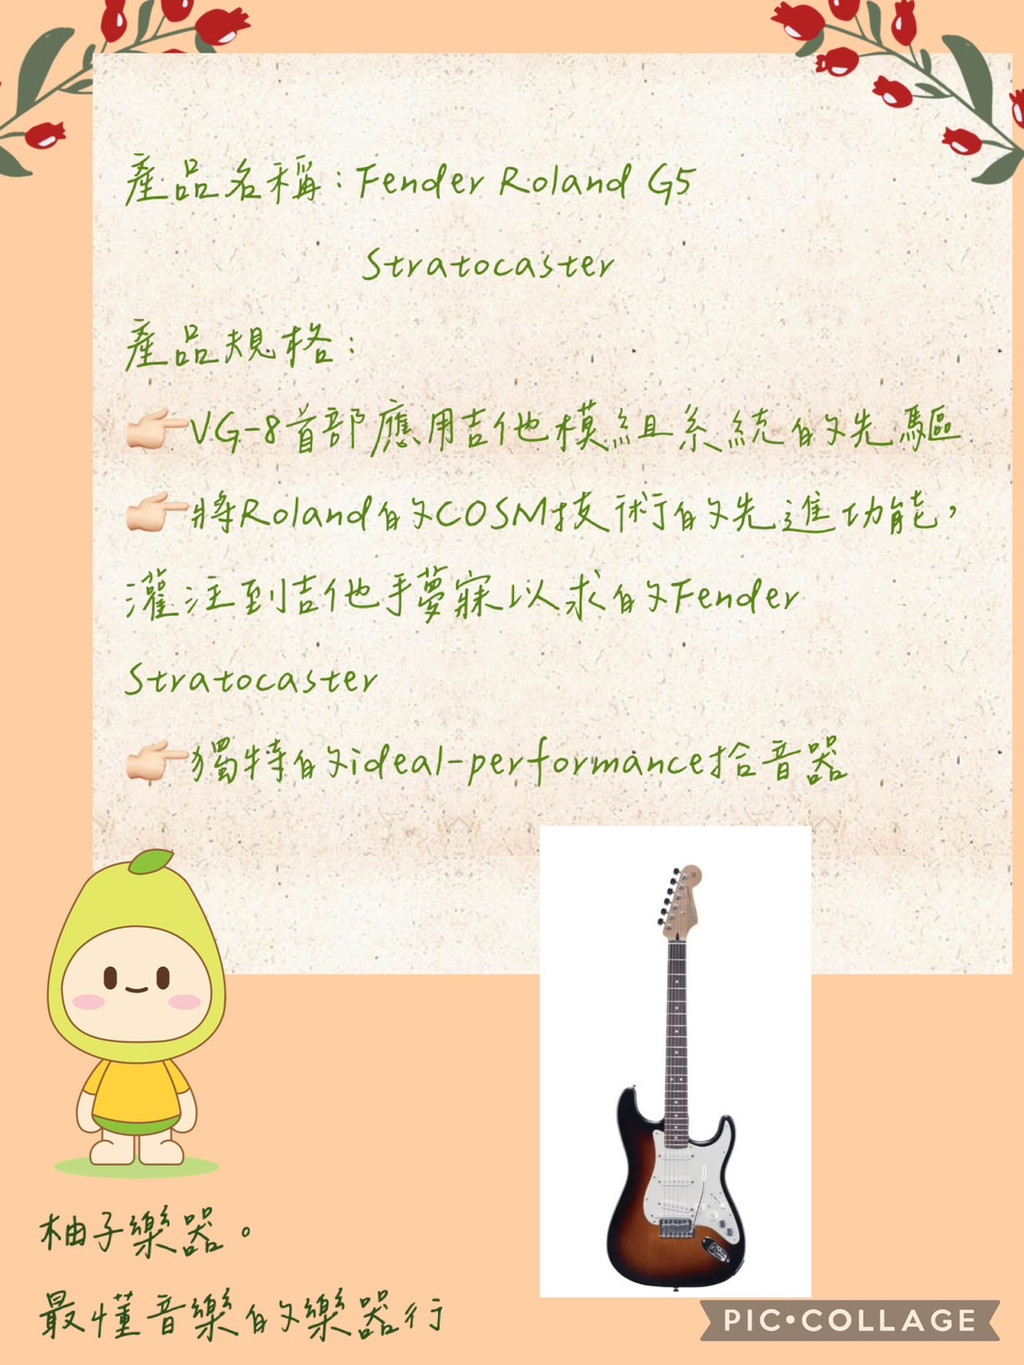 產品名稱：Fender Roland G5
Stratocaster
產品規格：
VG-8首部應用吉他模組系統的先驅
將Roland的COSM技術的先進功能，
灌注到吉他手夢寐以求的Fender
Stratocaster
獨特的ideal-performance拾音器
柚子樂器。
最懂音樂的樂器行
PIC•COLLAGE